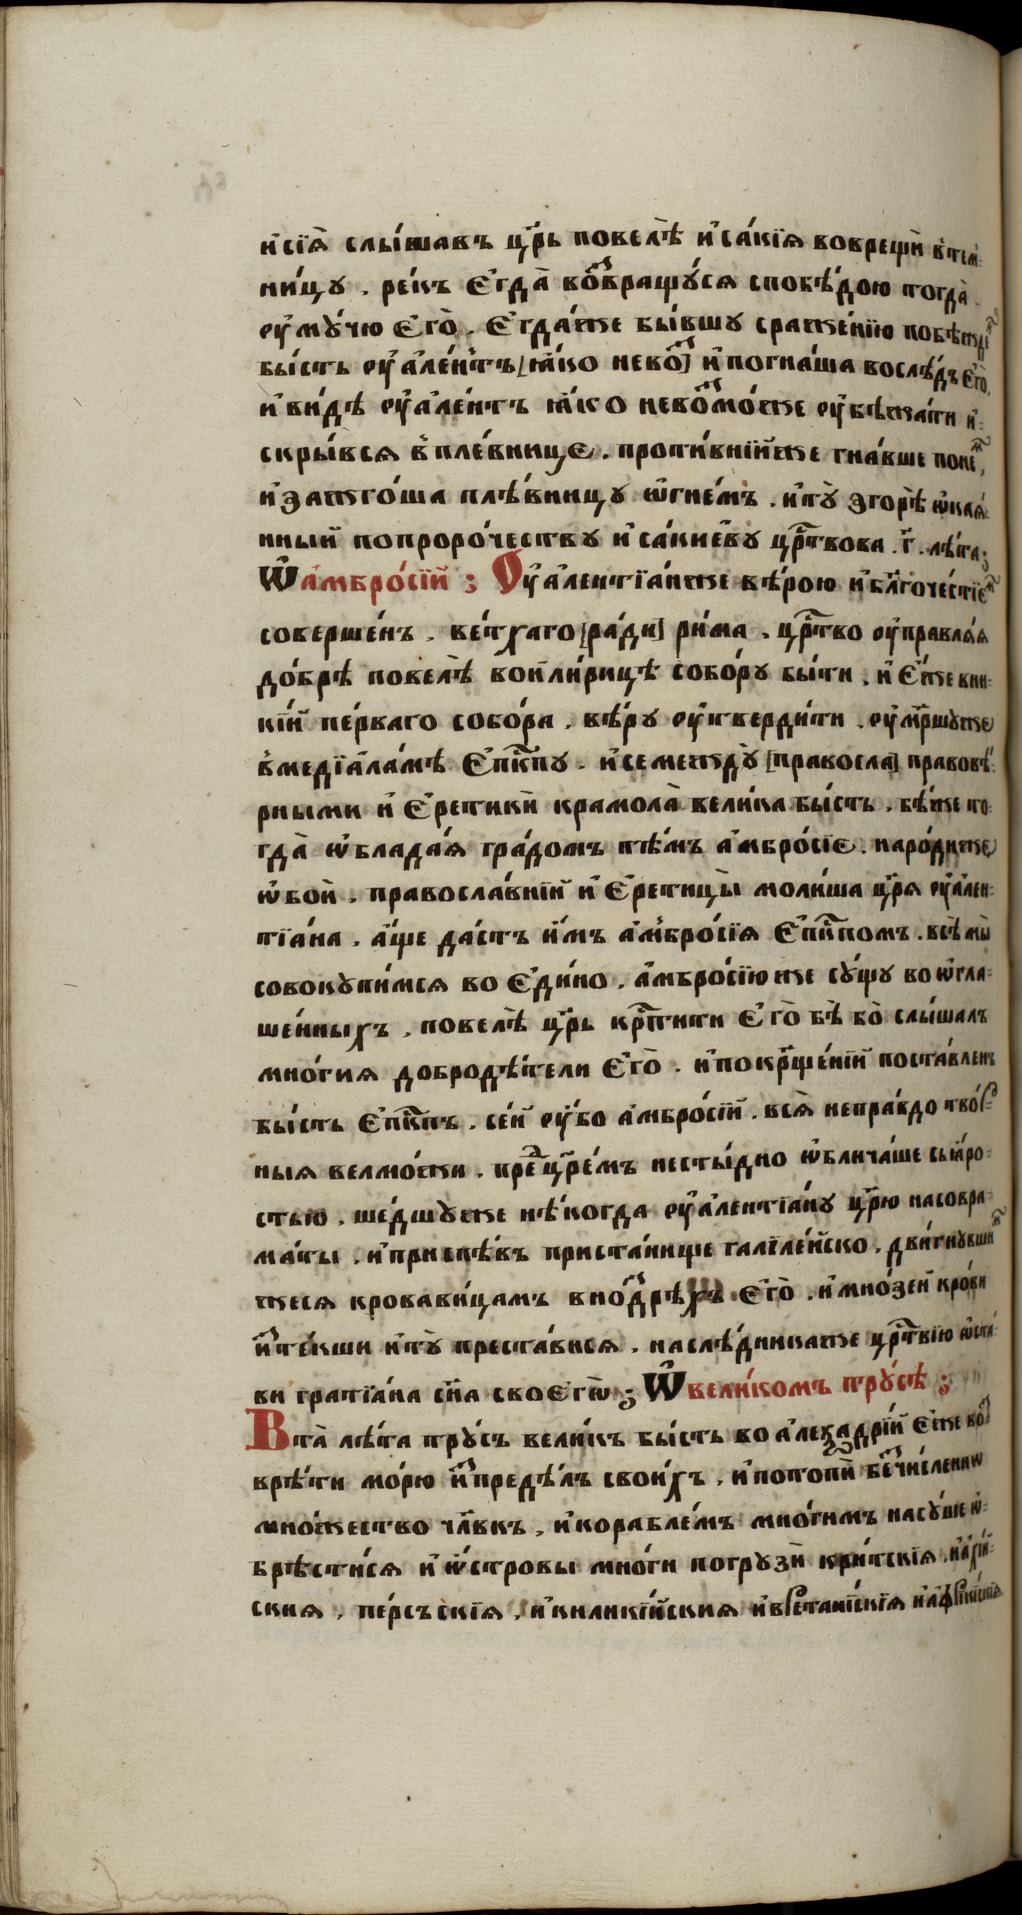 и҆сїѧ̀ слы́шавъ цр҃ь повелѣ̀ и҆са́кїѧ воврещѝ в̾те́м-
ни́цу . ре́къ є҆гда̀ воз̾вращу́сѧ спобѣ́дою тогда̀
оу҆му́чю є҆го̀ . є҆гда́же бы́вшу сраже́нїю побѣжде́
бы́сть оу҆але́нтъ [ꙗ҆́ко нево́з] и҆погна́ша вослѣ́дъ є҆го̀,
и҆ви́дѣ оу҆але́нтъ ꙗ҆́ко невозмо́жне оу҆бѣжа́ти и҆-
скры́всѧ в̾пле́вницꙋ . проти́внїйже гна́вше поне́ж,
и҆зажго́ша плѣ́вницу ѡ҆гне́мъ . и҆тꙋ̀ згорѣ̀ ѡ҆каѧ́-
нный попроро́честву и҆са́киевꙋ црⷭ҇твова . г҃ . лѣ́та ;
Ѡ҆ а҆мбро́сїй ; Оу҆алентїа́нже вѣ́рою и҆бл҃гоче́стїеⷨ
соверше́нъ . ве́тхаго [ра́ди] ри́ма . црⷭ҇тво оу҆правлѧ́ѧ
до́брѣ повелѣ̀ воилири́цѣ собо́ру бы́ти . и҆ є҆́же вни-
кі́й пе́рваго собо́ра . вѣ́ру оу҆тверди́ти . оу҆ме́ршꙋже
в̾медїала́мѣ є҆пⷭ҇кпу . и҆семеждꙋ̀ [правосла] правовѣ́-
рными и҆ є҆ретикѝ крамола̀ вели́ка бы́сть . бѣ́же то-
гда̀ ѡ҆блада́ѧ гра́домъ тѣ́мъ а҆мбро́сїє . наро́диже
ѡ҆боѝ . правосла́внїй и҆ є҆ретицы̀ моли́ша цр҃ѧ оу҆ален-
тїа́на . а҆́ще да́стъ и҆́мъ а҆мбро́сїѧ є҆пⷭ҇кпомъ . всѣ̀ мы̀
совокупи́мсѧ во є҆ди́но . а҆мбро́сїюже су́щу во ѡ҆гла-
ше́нныхъ . повелѣ̀ цр҃ь крⷭ҇ти́ти є҆го̀ бѣ̀ бо̀ слы́шалъ
мно́гиѧ добродѣ́тели є҆го̀ . и҆покрⷭ҇ще́нїй поста́вленъ
бы́сть є҆пⷭ҇кпъ . се́й оу҆́бо а҆мбро́сїй . всѧ̀ непра́вдо тво́р-
ныѧ велмо́жи . преⷣцр҃е́мъ несты́дно ѡ҆блича́ше съꙗ҆́ро-
стью . ше́дшꙋже нѣ́когда оу҆алентїа́нꙋ цр҃ю насовра-
ма́ты . и҆приспѣ́въ приста́нище галїле́йско . дви́гнꙋвшиⷨ
жесѧ кровави́цамъ в нѡздрѣ́хъ є҆го̀ . и҆мно́зей кро́ви
и҆сте́кши и҆тꙋ̀ преста́висѧ . наслѣ́дниканже црⷭ҇твїю ѡ҆ста-
ви гратїа́на сн҃а своєгѡ̀ ; Ѡ҆ вели́комъ трꙋ́сѣ ;
Вта̀ лѣ́та трꙋ́съ вели́къ бы́сть во а҆леѯадрі́й є҆́же воз
врѣ́ти мо́рю и҆зпредѣ́лъ свои́хъ . и҆потопѝ без̾чи́сленнѡ
мно́жество чл҃вкъ . и҆корабле́мъ мно́гимъ насꙋ́ше ѡ҆-
брѣсти́сѧ и҆ ѡ҆́стровы мно́ги погрузѝ кри́тскїѧ . и҆а҆хі́й-
скиѧ . пе́рсъскїѧ . и҆киликі́йскиѧ и҆вретані́скїѧ и҆а҆фрикі́искиѧ